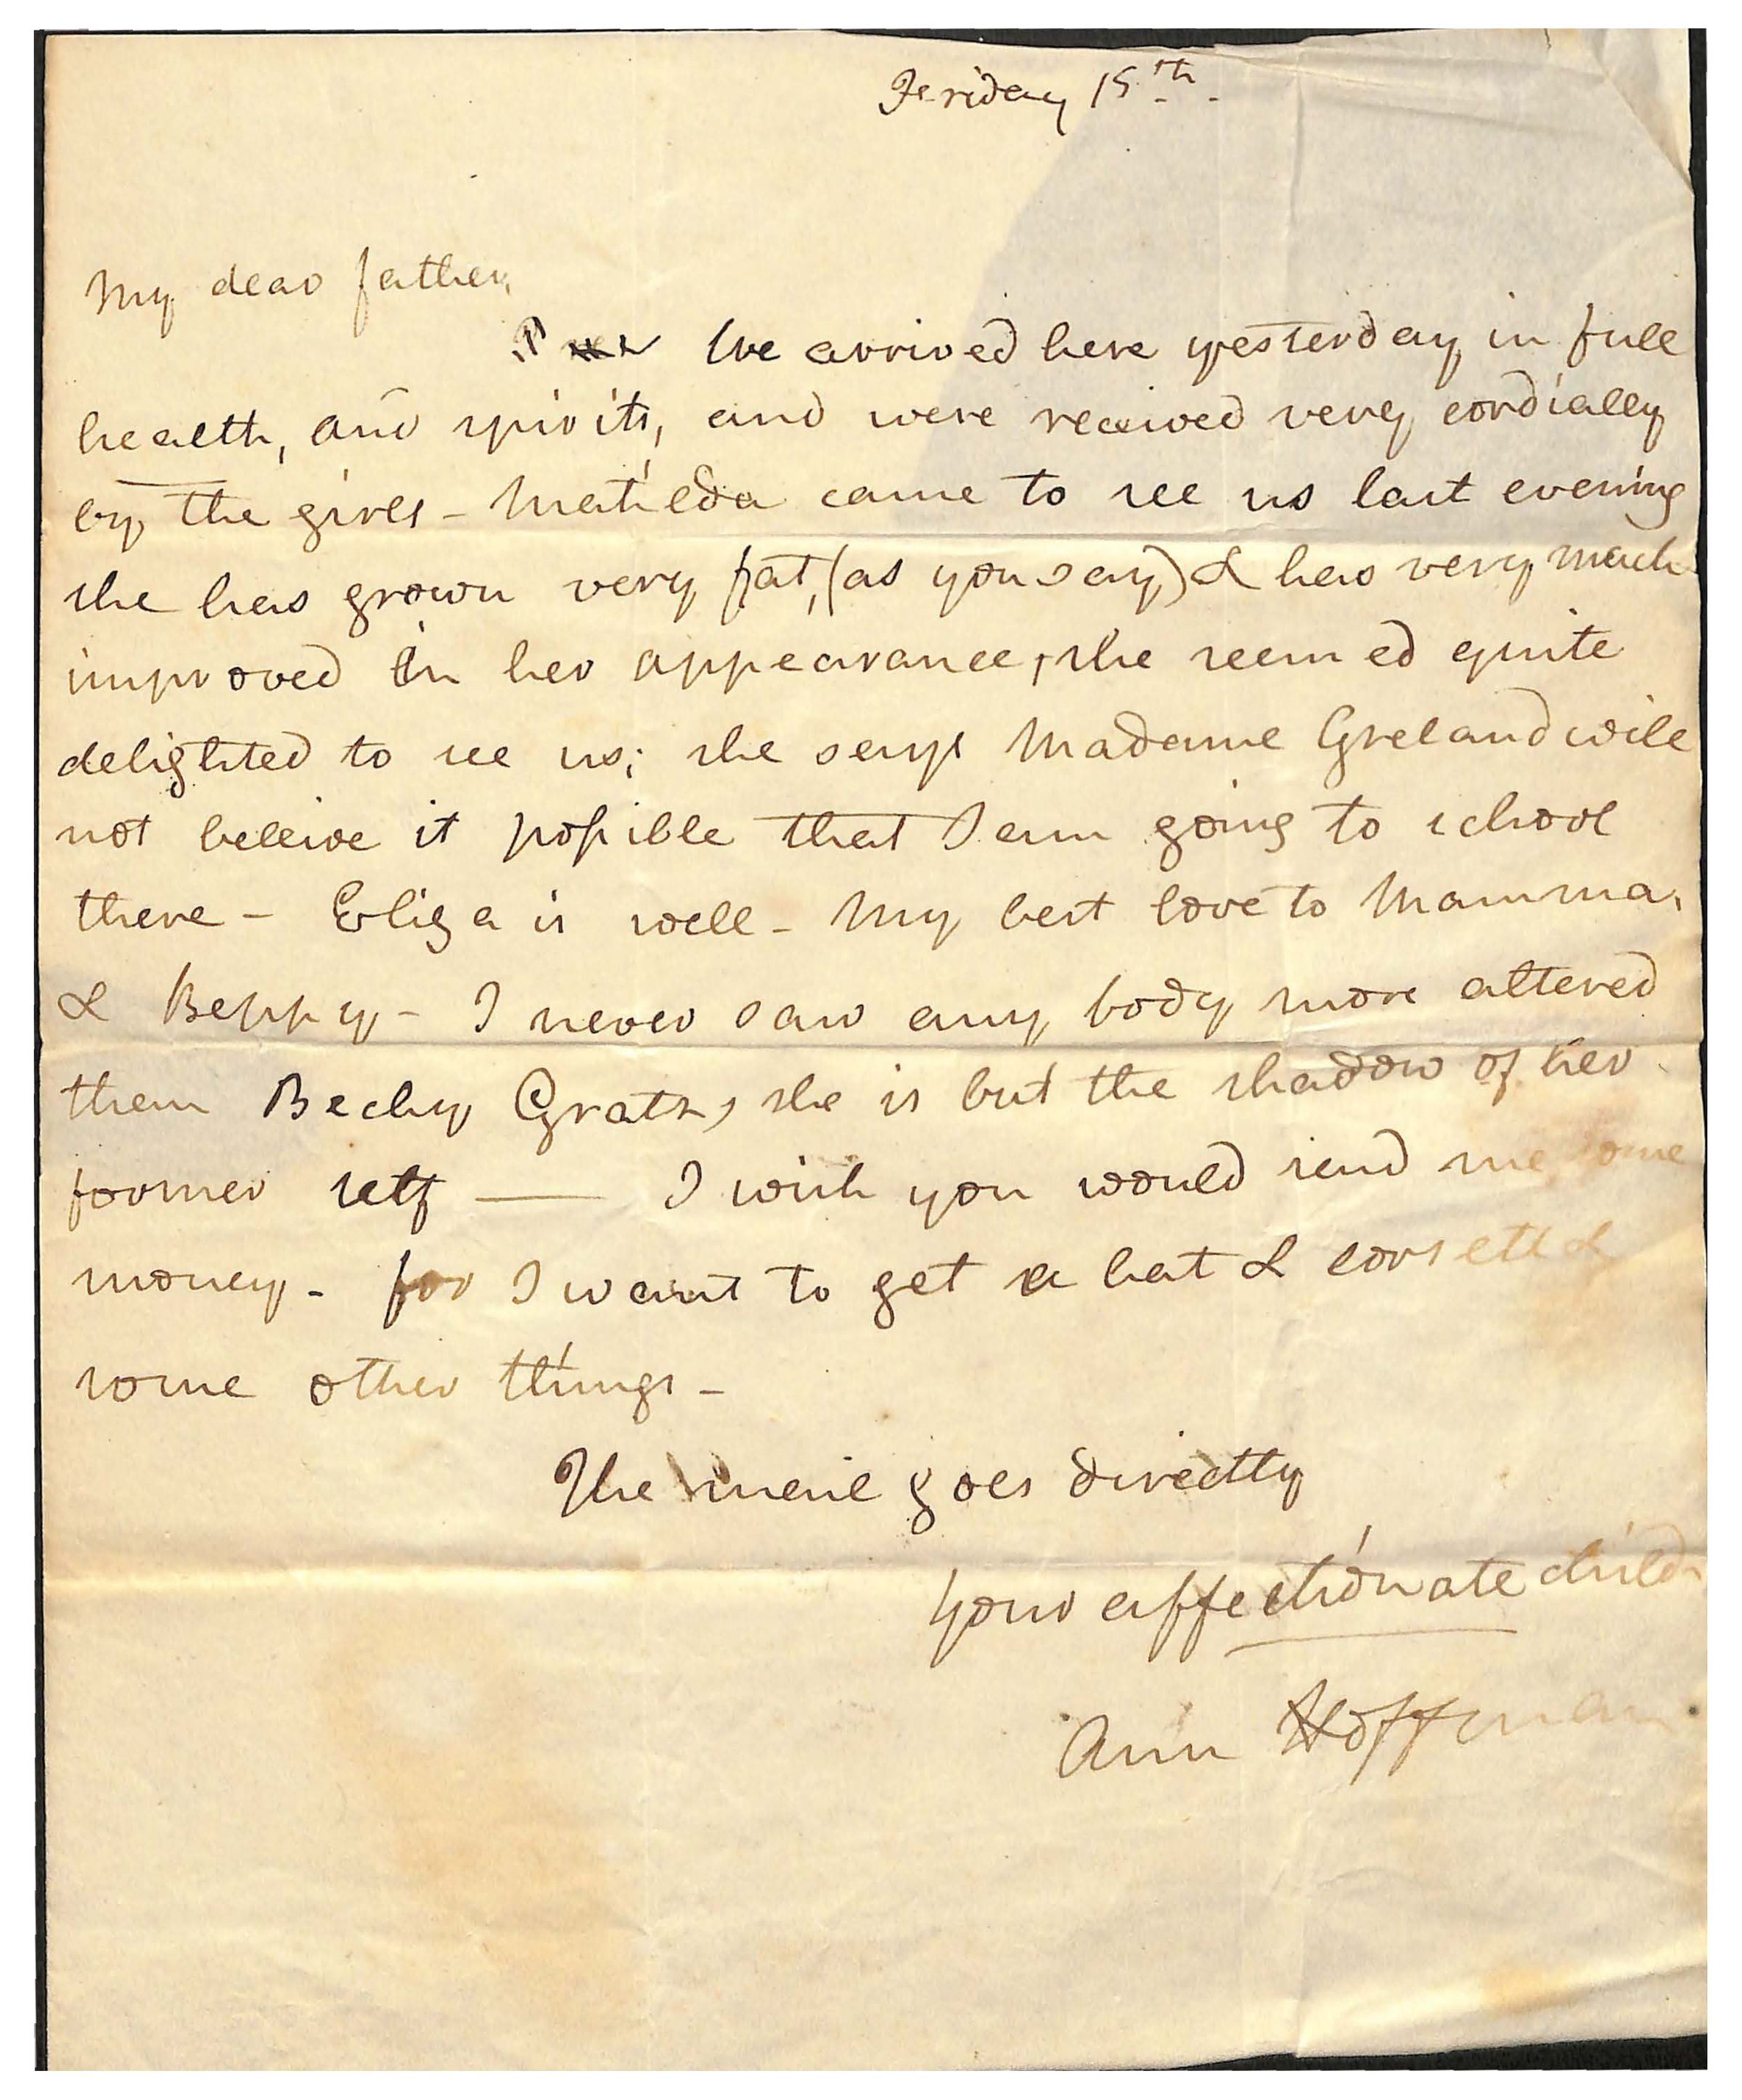 Feriday 15th.
My dear father,
We arrived here yesterday in full
health, and spirits, and were received very cordially
by the girls - Matilda came to see us last evening
she has grown very fat, (as you say) & has very much
improved in her appearance, she seemed quite
delighted to see us; she says Madame Greland will
not beleive it possible that I am going to school
there - Eliza is well - My best love to Mamma,
& Beppy - I never saw any body more altered
than Becky Gratz, she is but the shadow of her
former self — I wish you would send me some
money - for I want to get a hat & corsett &
some other things -
The mail goes directly
your affectionate child
Ann Hoffman